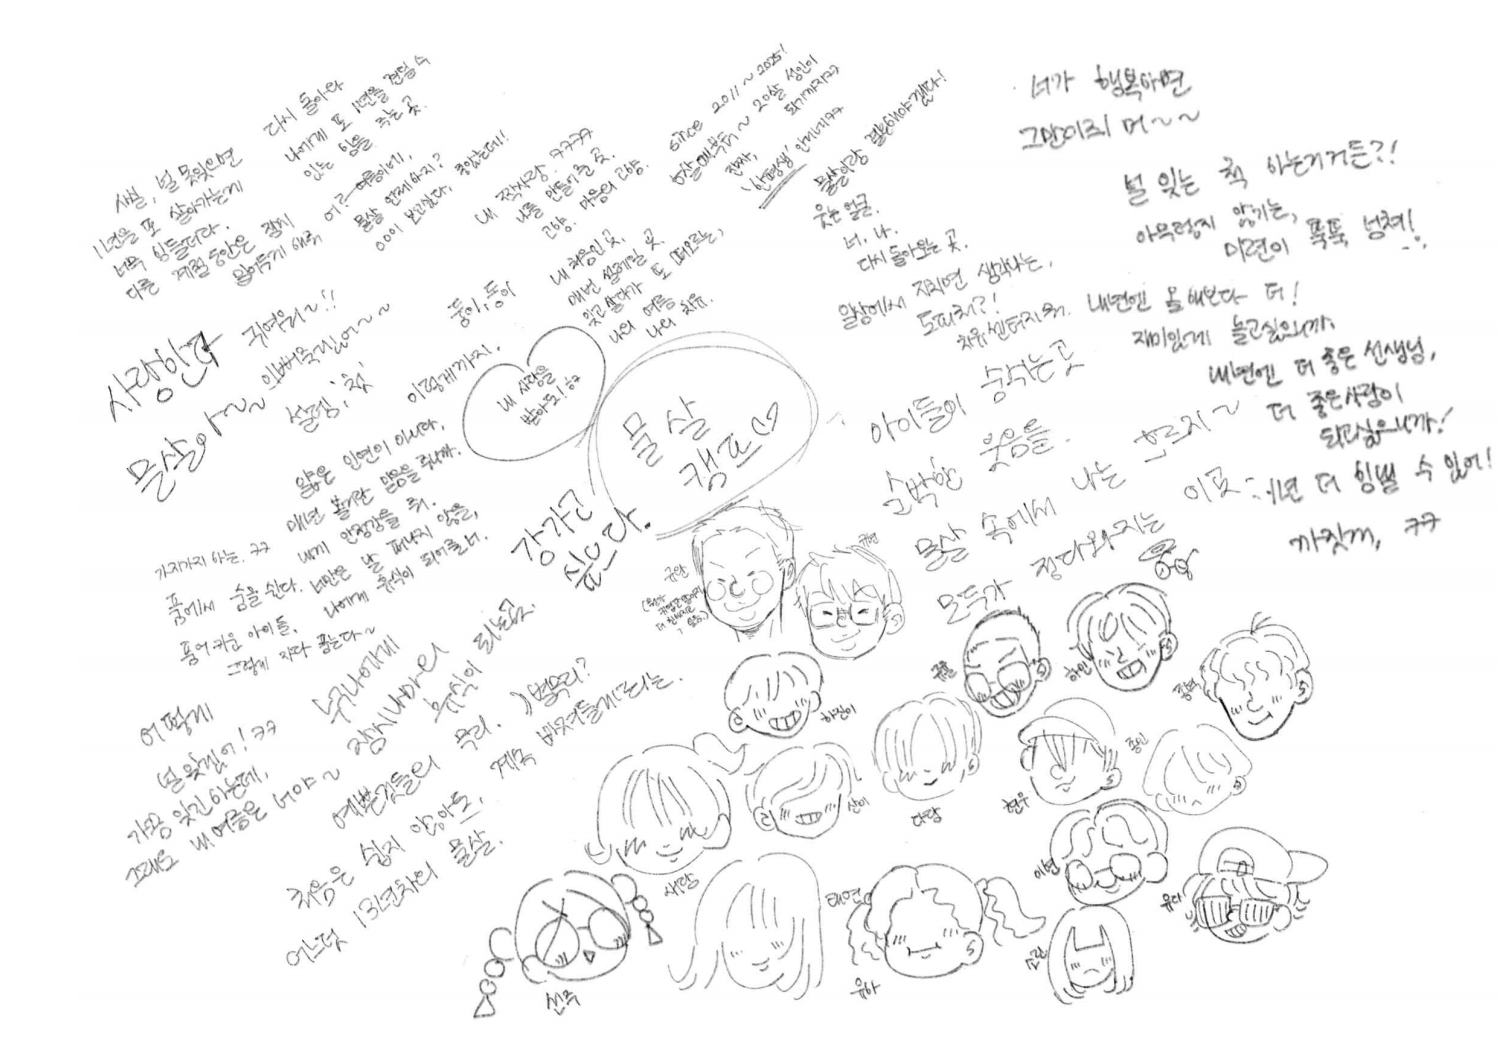 새벽, 널 못잊으면
1년을 또 살아가는게
너무 힘들더라.
다른 계절 동안은 잠시
잊어두기 해줘
다시 돌아와
나에게 또 1년을 견딜 수
있는 힘을 주는 곳.
어? 여름이네,
물살 언제하지?
000이 보고싶다. 좋았는데!!
내 짝사랑. ㅋㅋㅋㅋ
나를 만들어준 곳.
고향. 마음의 고향.
since 2011 ~ 2025!
6살 때부터 ~ 20살 성인이
되기까지ㅋㅋ
진짜,
'한평생' 안이네ㅋㅋ
물살이랑 결혼해야겠다!
웃는 얼굴.
너, 나.
다시 돌아오는 곳.
일상에서 지치면 생각나는,
도피처?!
치유센터지 뭐.
너가 행복하면
그만이죠 머~~
널 잊는 척 하는거거든?!
아무렇지 않기는,
미련이 뚝뚝 넘쳐!
내년엔 올해보다 더!
재미있게 놀고싶으니까.
내년엔 더 좋은 선생님,
더 좋은사람이
되고싶으니까!
1년 더 힘낼 수 있어!
까짓꺼, ㅋㅋ
사랑한다
물살아~~
귀여워~!!
이뻐죽겠어~~~
설렘, '첫'
둥이, 둥이
이렇게까지.
내 처음인 곳,
매번 설레일 곳
잊고살다가 또 떠오르는,
나의 여름
나의 치유.
내 사랑을
받아줘! ㅎㅎ
물살
캠프♡
아이들이 숨쉬는곳
순박한 웃음을.
물살 속에서 나는 흐르지~
모두가 정다워지는 이곳:
얇은 인연이 아니라,
매년 볼거란 믿음을 주니까.
내게 안정감을 줘.
가지가지 하는. ㅋㅋ
품에서 숨을 쉰다. 너만은 날 떠나지 않을,
품어 키운 아이들. 나에게 휴식이 되어줄 너.
그렇게 자라 품는다~
강가고
싶으다.
어떻게
널 잊겠어! ㅋㅋ
가끔 잊긴하는데,
그래도 내 여름은 너야~
누구나에게
잠시나마의 휴식이 되는곳.
예쁜것들의 무리.
처음은 쉽지 않아도,
어느덧 13년차의 물살.
계속 빠져들게되는.
규안
규현
하진이
규율
하민
종혁
새랑
산이
다람
현우
종인
선주
태연
유하
이현
유다